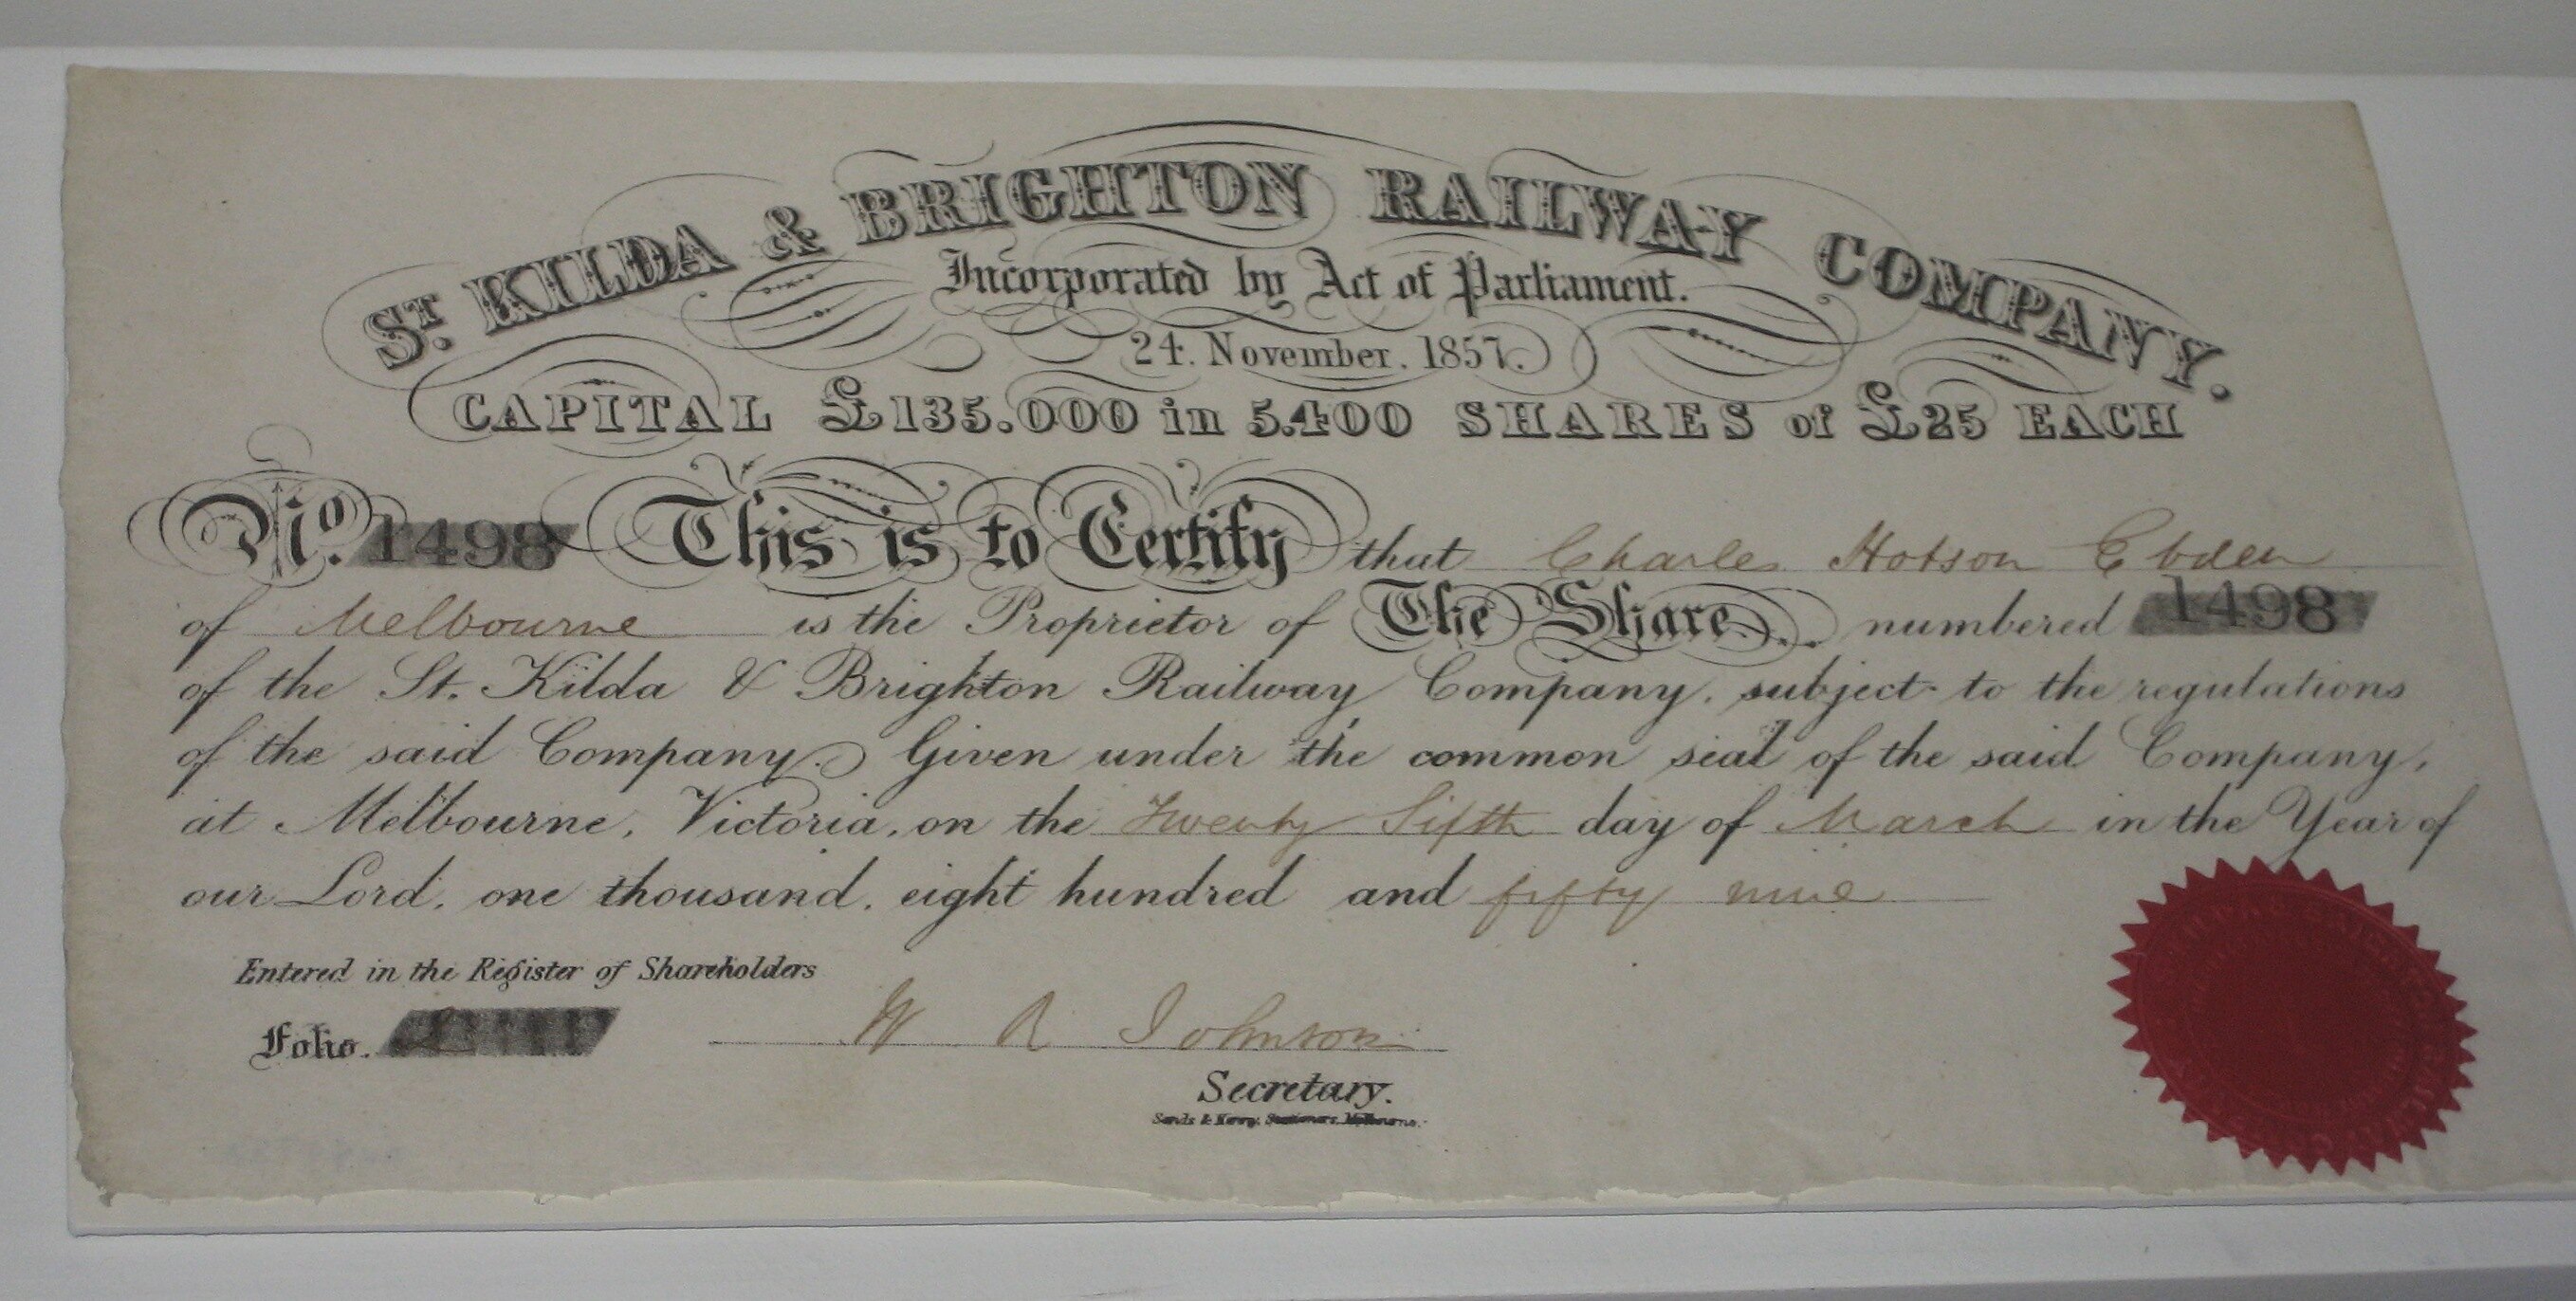 ST. KILDA & BRIGHTON RAILWAY COMPANY.
Incorporated by Act of Parliament.
24. November. 1857.
CAPITAL £135.000 in 5.400 SHARES of £25 EACH
No. 1498 This is to Certify that Charles Hotson Ebden
of Melbourne is the Proprietor of The Share numbered 1498
of the St. Kilda & Brighton Railway Company, subject to the regulations
of the said Company. Given under the common seal of the said Company,
at Melbourne, Victoria, on the Twenty Fifth day of March in the Year of
our Lord, one thousand, eight hundred and fifty nine
Entered in the Register of Shareholders
Folio.
W R Johnson
Secretary.
Sands & Kenny, Stationers, Melbourne.